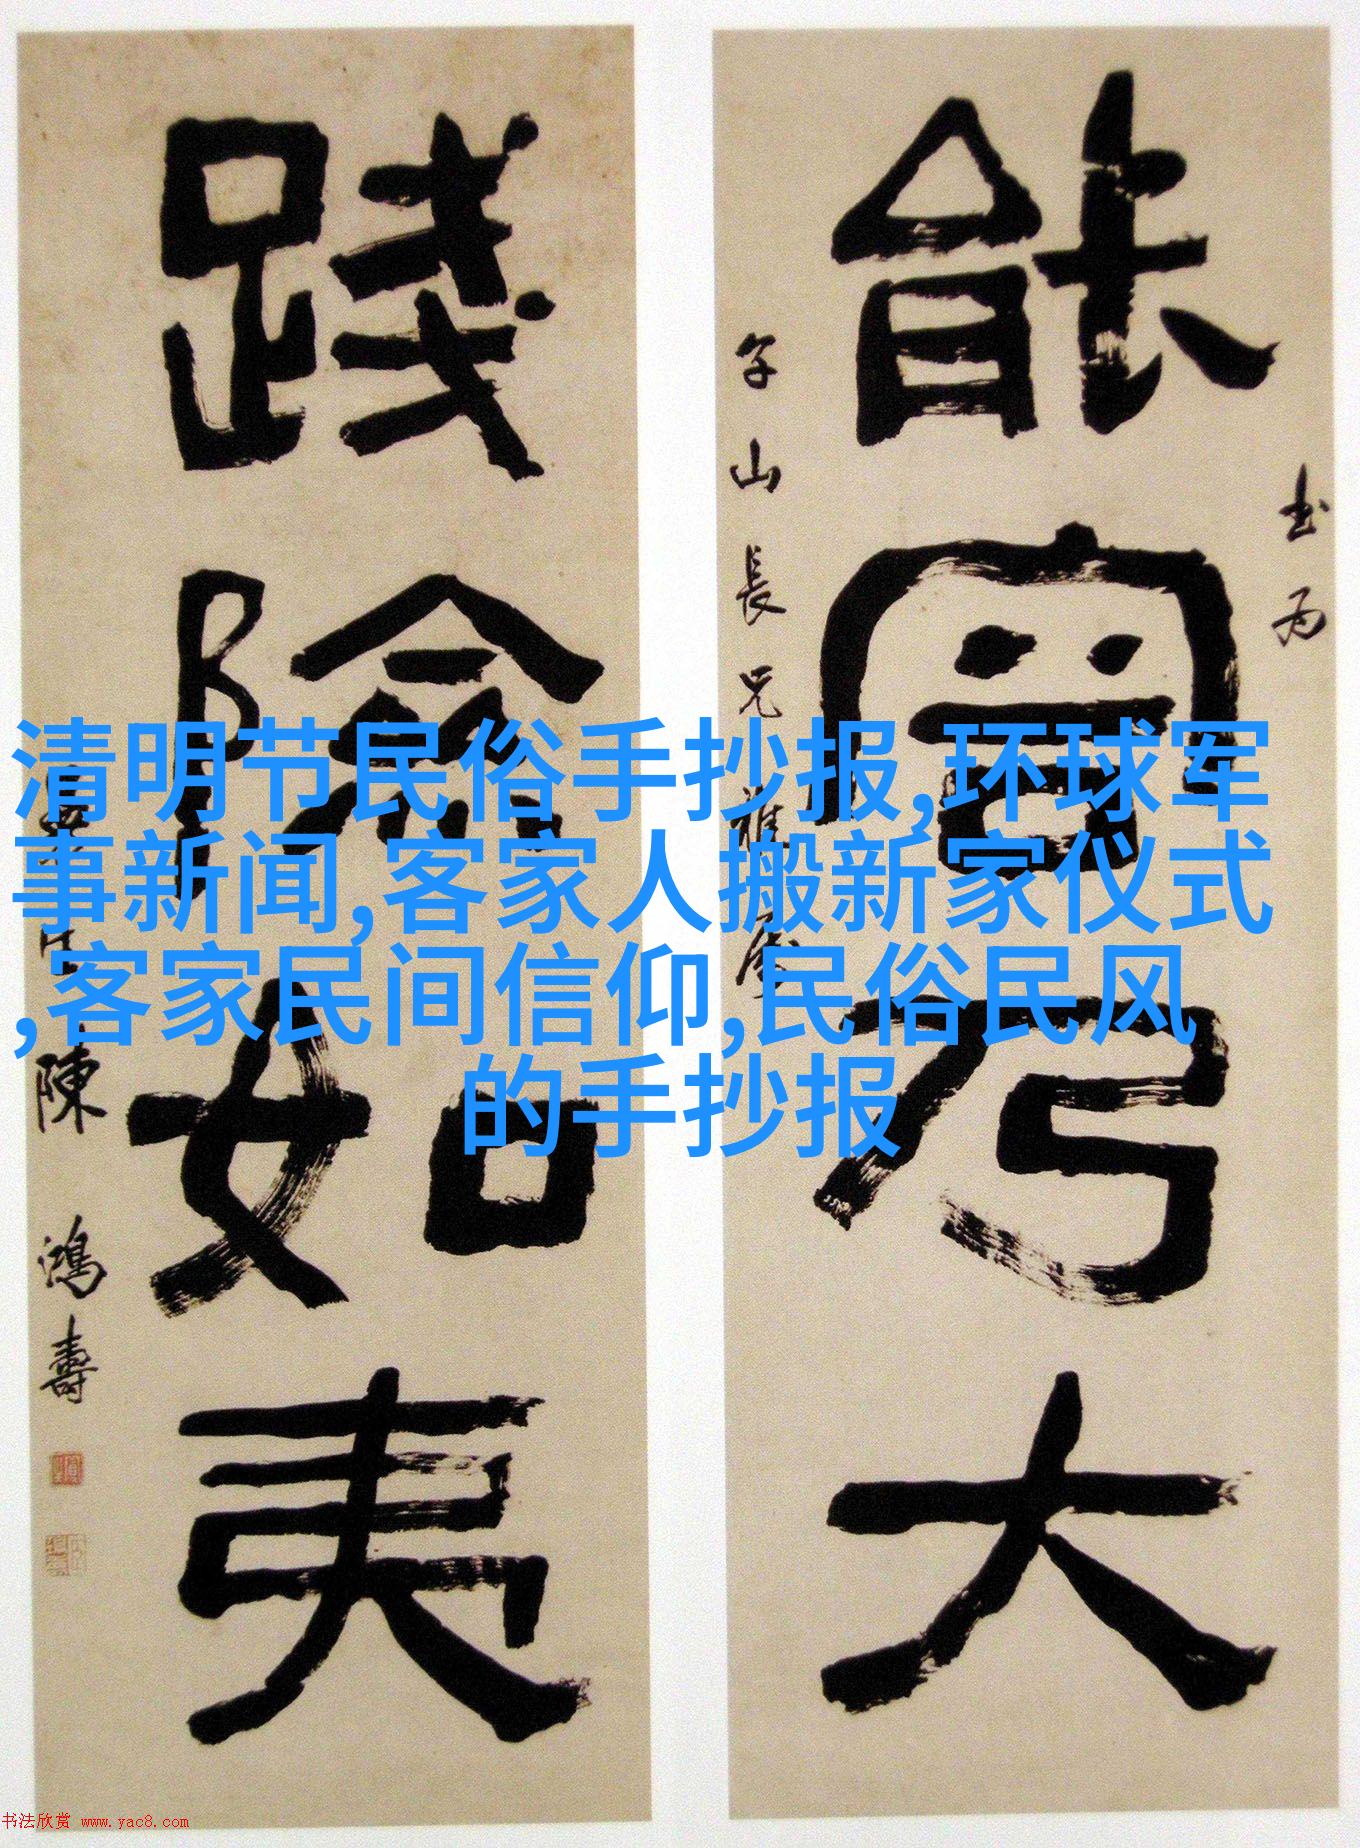 書為
能容乃大
山長兄雅
踐險如夷
陳鴻壽
清明节民俗手抄报,环球军
事新闻,客家人搬新家仪式
,客家民间信仰,民俗民风
的手抄报
书法欣赏 www.yac8.com